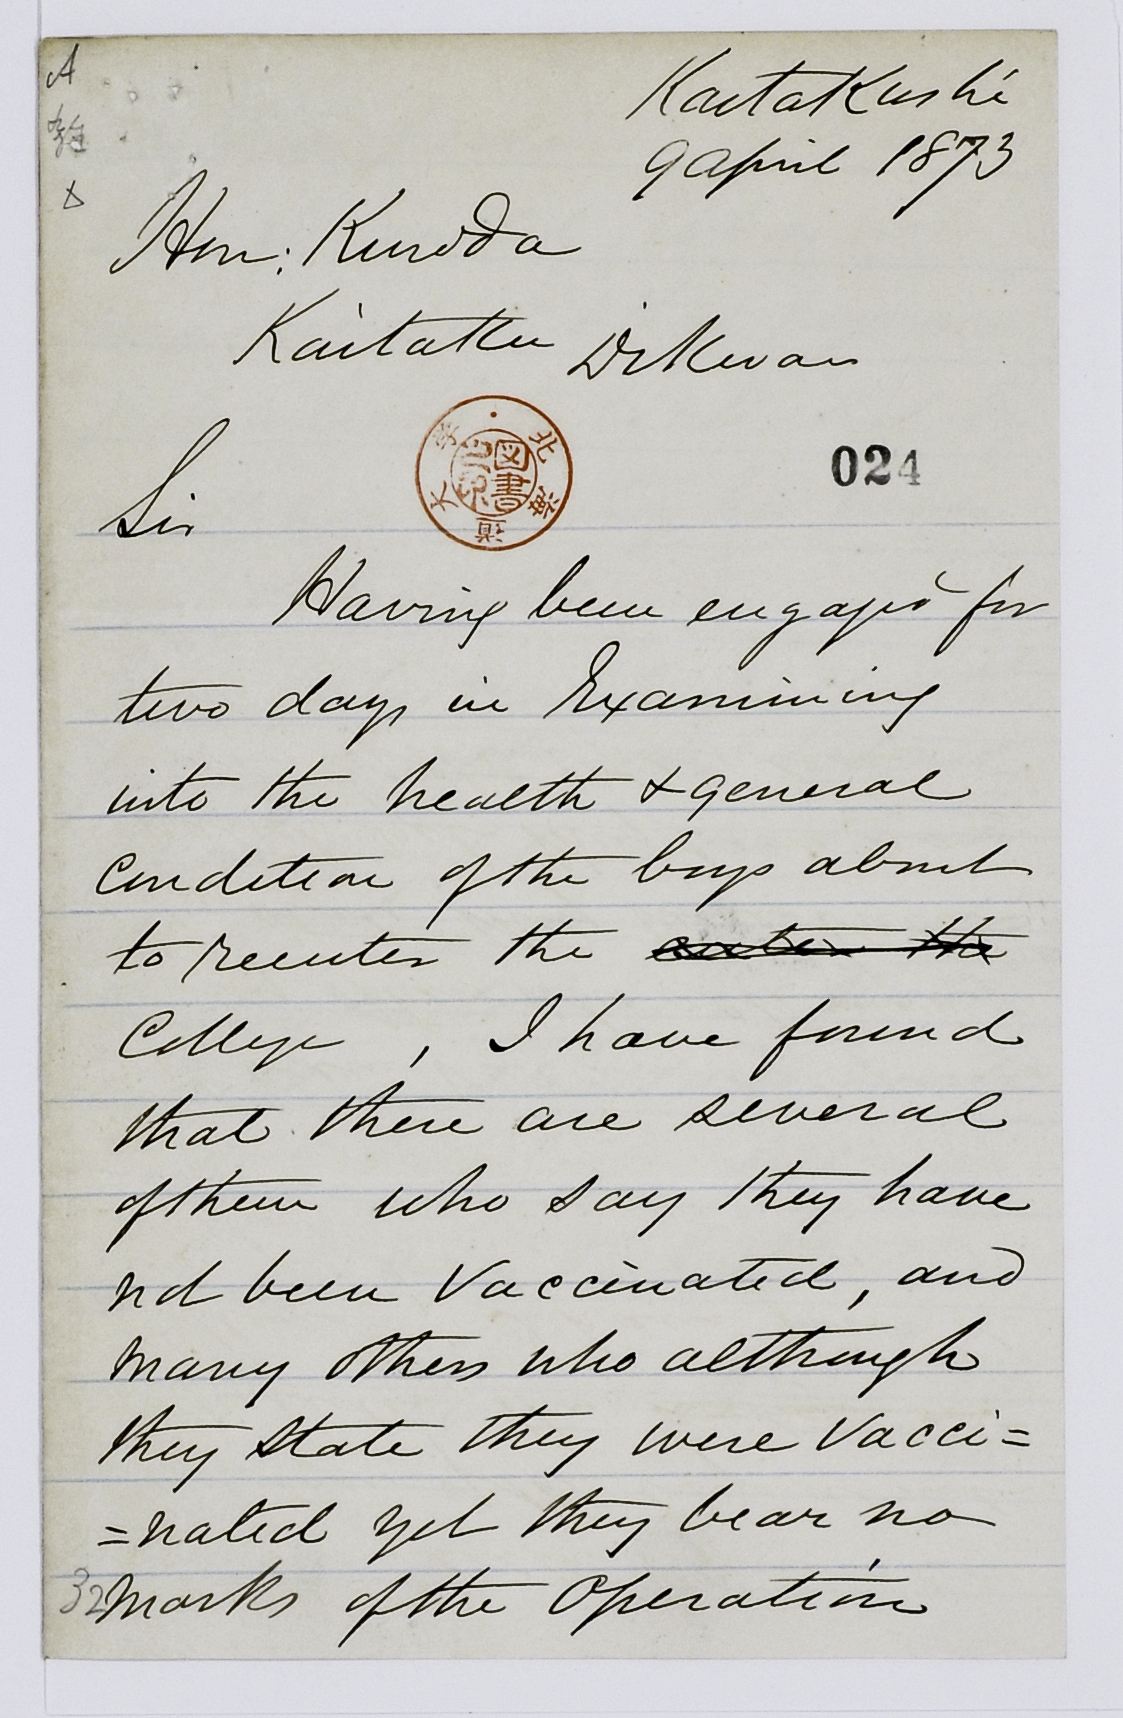 A
Kaitakushi
9 April 1873
Hon: Kuroda
Kaitaku Dikwan
北海道大学
図書
024
Sir
Having been engaged for
two days in Examining
into the health & general
Condition of the boys about
to reenter the enter the
College , I have found
that there are several
of them who say they have
not been Vaccinated, and
many others who although
they state they were Vacci=
=nated yet they bear no
marks of the Operation
32